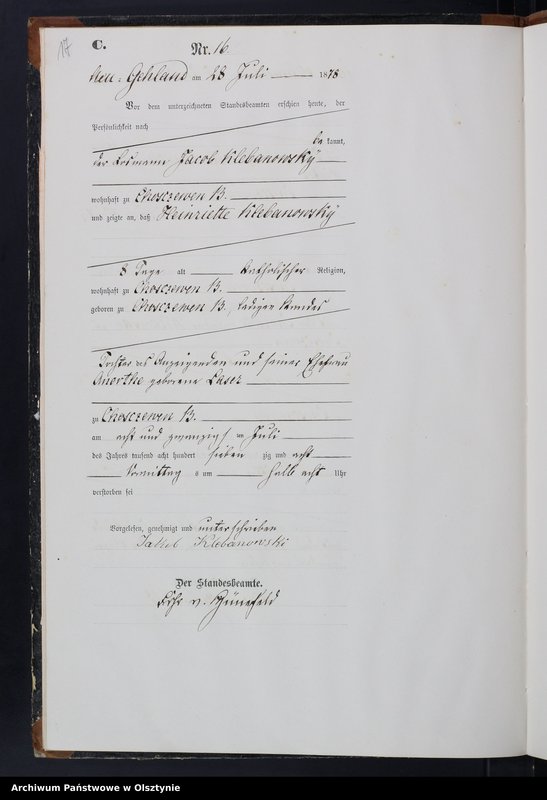 17
C.
Nr. 16
Neu-Gehland am 28 Juli 1878
Vor dem unterzeichneten Standesbeamten erschien heute, der
Persönlichkeit nach
be kannt,
der Losmann Jacob Klebanowsky
wohnhaft zu Chosczewen B.
und zeigte an, daß Heinriette Klebanowsky
8 Tage alt Katholischer Religion,
wohnhaft zu Chosczewen B.
geboren zu Chosczewen B., ledigen Standes
Tochter des Anzeigenden und seiner Ehefrau
geborene
zu Chosczewen B.
am acht und zwanzigsten Juli
des Jahres tausend acht hundert sieben zig und acht
Vormittag s um halb acht Uhr
verstorben sei
Vorgelesen, genehmigt und unterschrieben
Jakob Klebanowski
Der Standesbeamte.
v.
Archiwum Państwowe w Olsztynie